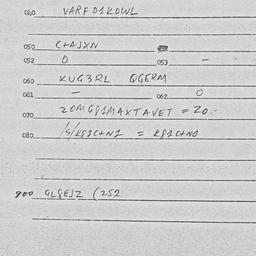 040 VARFD1KDWL
050 C+AJXN
052 0 053 -
060 KUG3RL QGERM
061 - 062 0
070 20MG81MAXTAVET = 20.
080 /S/K81C+N1 = K81C+N0
900 GL8EJZ (252